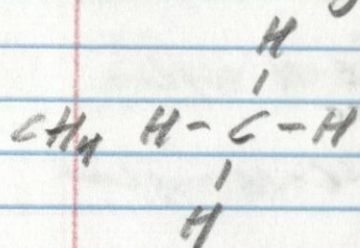 H
CH4 H - C - H
H